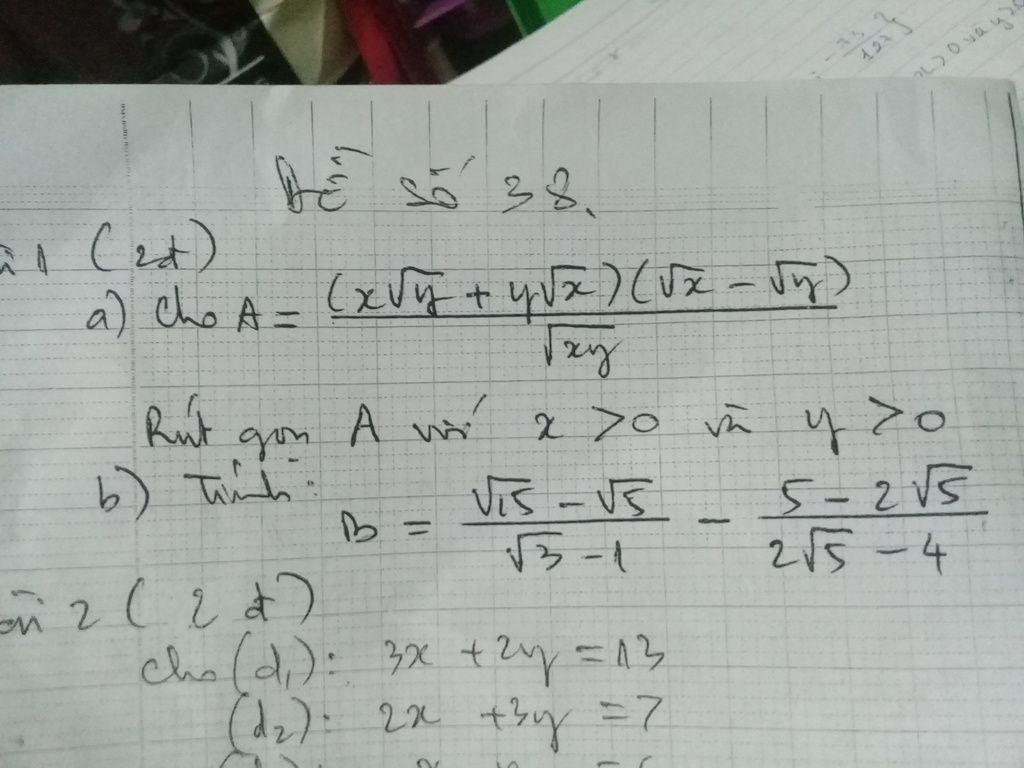 Đề số 38.
1 (2đ)
a) Cho A = (x√y + y√x)(√x - √y) / √xy
Rút gọn A với x > 0 và y > 0
b) Tính:
B = (√15 - √5) / (√3 - 1) - (5 - 2√5) / (2√5 - 4)
2 (2đ)
Cho (d₁): 3x + 2y = 13
(d₂): 2x + 3y = 7